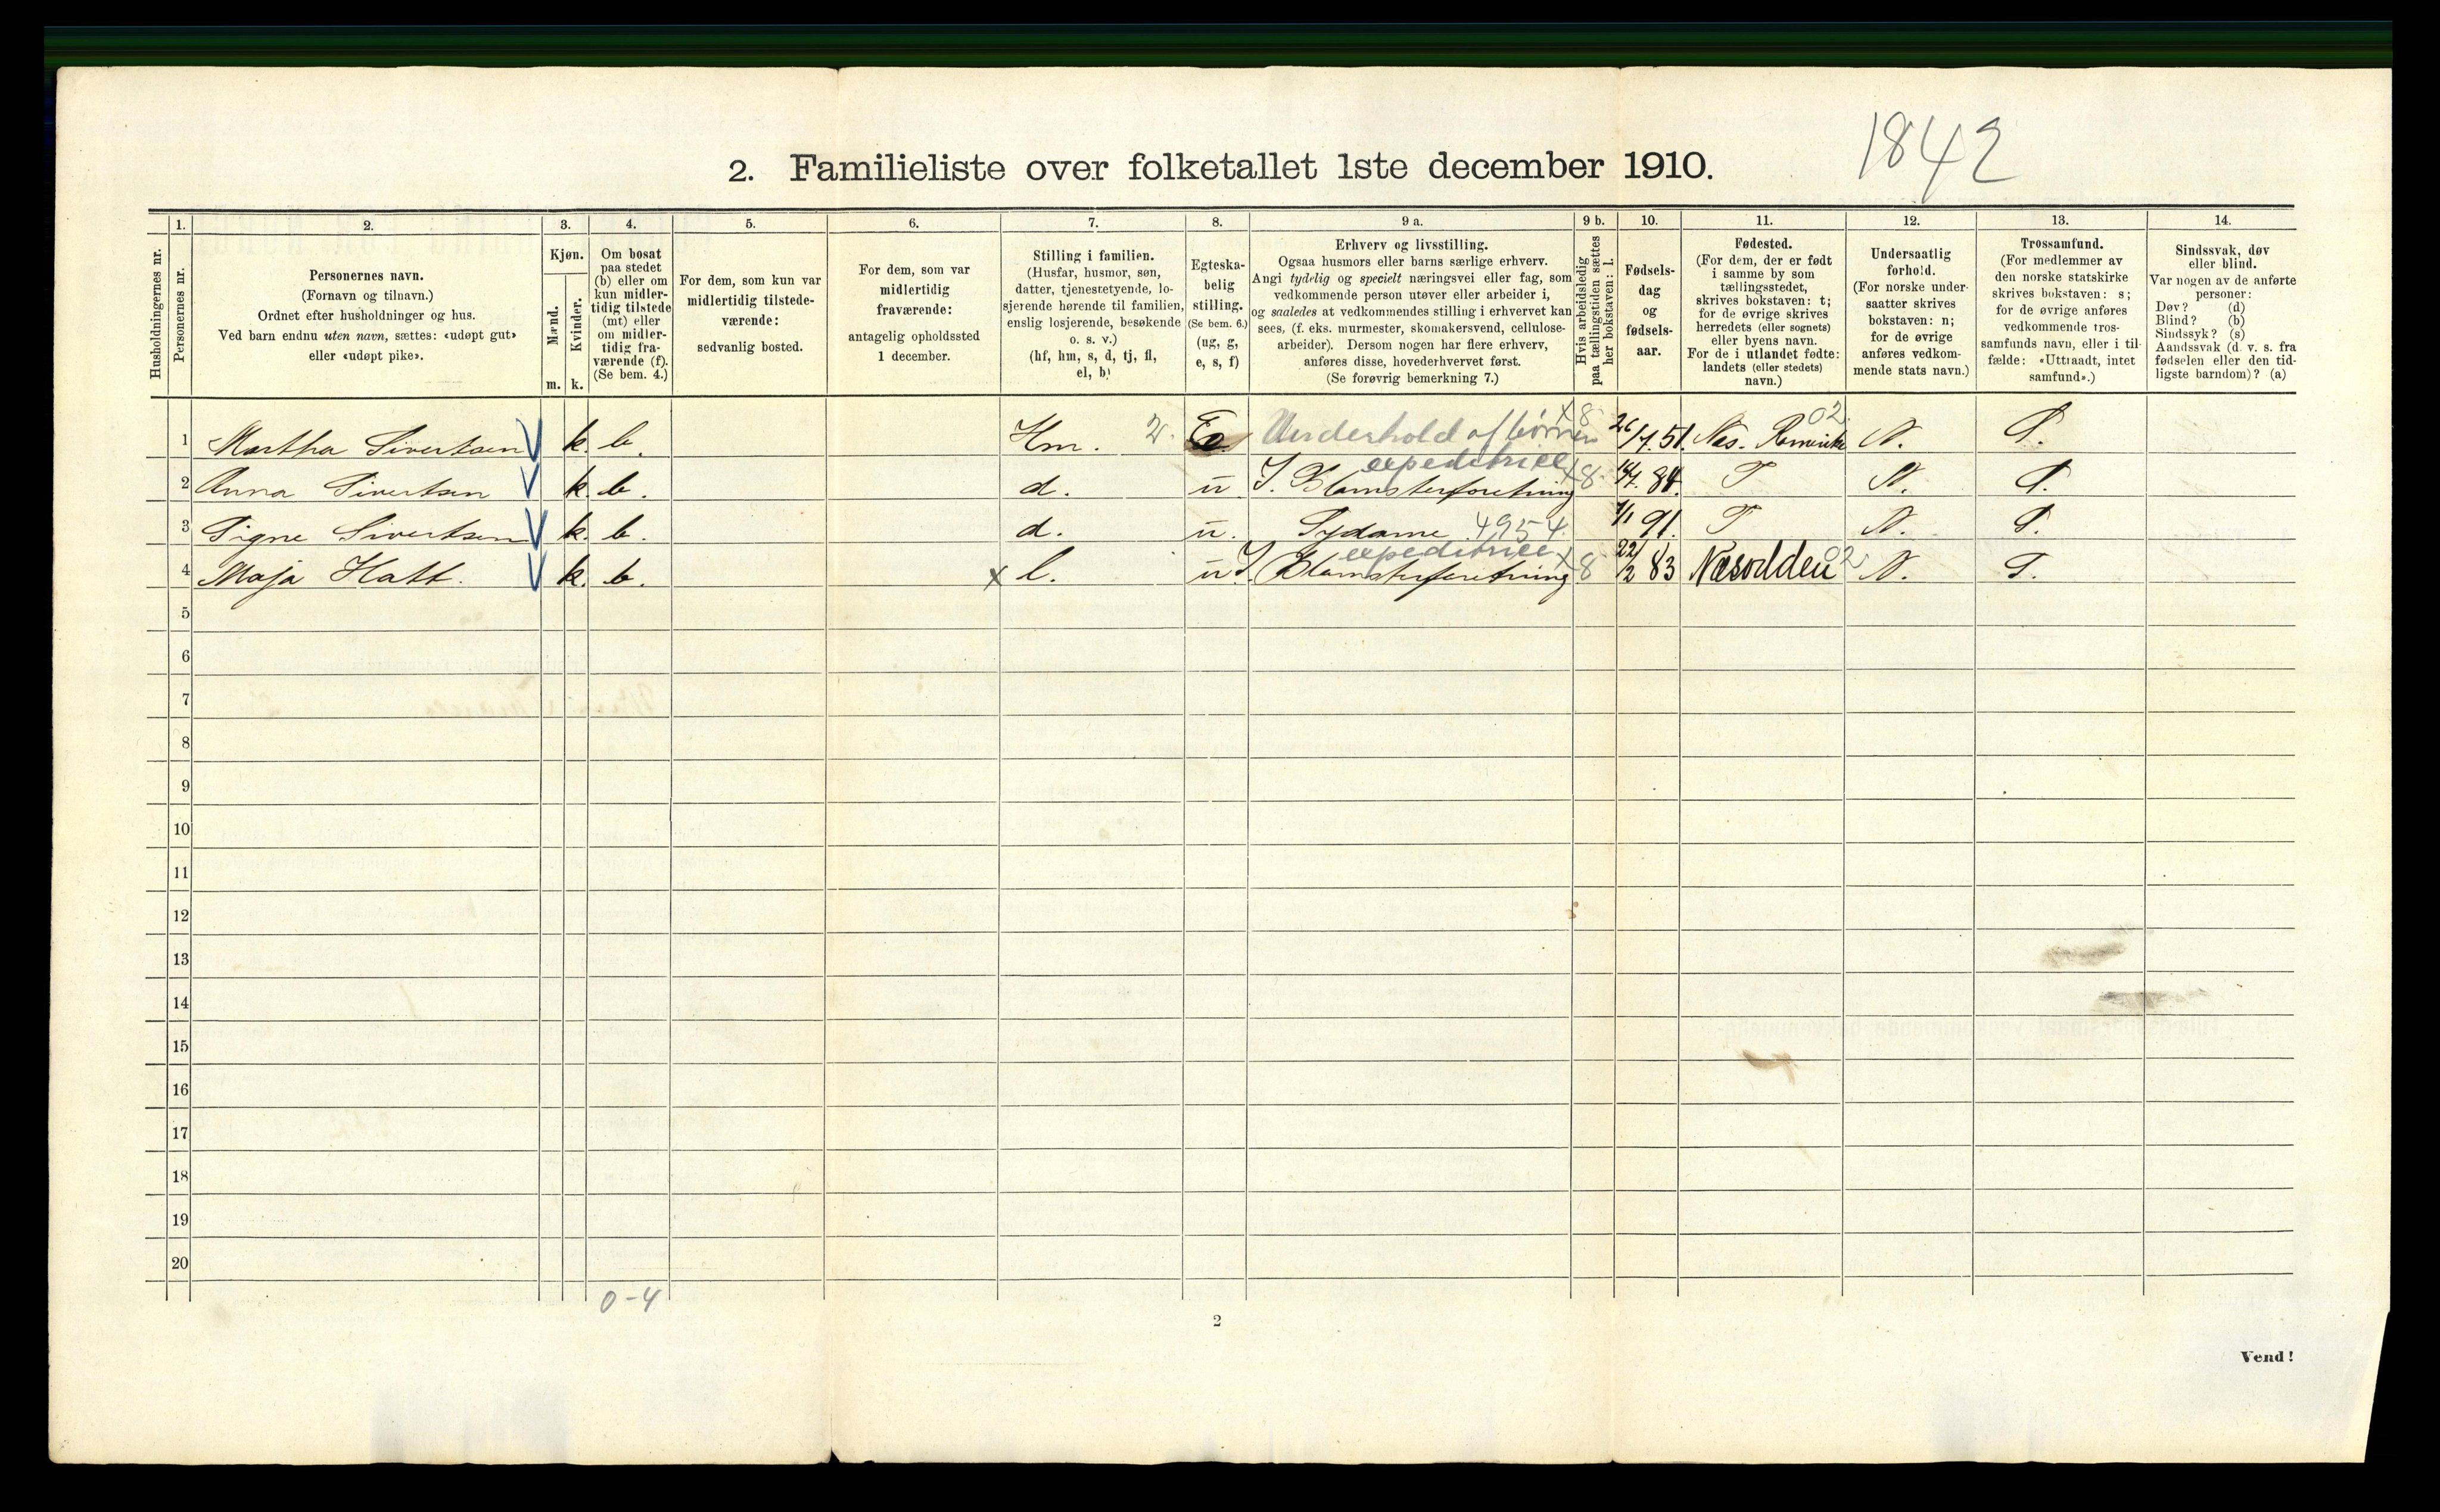 1842
2. Familieliste over folketallet 1ste december 1910.
1. 2. 3. 4. 5. 6. 7. 8. 9 a. 9 b. 10. 11. 12. 13. 14.
Husholdningernes nr.
Personernes nr.
Personernes navn.
(Fornavn og tilnavn.)
Ordnet efter husholdninger og hus.
Ved barn endnu uten navn, sættes: «udøpt gut»
eller «udøpt pike».
Kjøn.
Mænd.
Kvinder.
m. k.
Om bosat
paa stedet
(b) eller om
kun midler-
tidig tilstede
(mt) eller
om midler-
tidig fra-
værende (f).
(Se bem. 4.)
For dem, som kun var
midlertidig tilstede-
værende:
sedvanlig bosted.
For dem, som var
midlertidig
fraværende:
antagelig opholdssted
1 december.
Stilling i familien.
(Husfar, husmor, søn,
datter, tjenestetyende, lo-
sjerende hørende til familien,
enslig losjerende, besøkende
o. s. v.)
(hf, hm, s, d, tj, fl,
el, b)
Egteska-
belig
stilling.
(Se bem. 6.)
(ug, g,
e, s, f)
Erhverv og livsstilling.
Ogsaa husmors eller barns særlige erhverv.
Angi tydelig og specielt næringsvei eller fag, som
vedkommende person utøver eller arbeider i,
og saaledes at vedkommendes stilling i erhvervet kan
sees, (f. eks. murmester, skomakersvend, cellulose-
arbeider). Dersom nogen har flere erhverv,
anføres disse, hovederhvervet først.
(Se forøvrig bemerkning 7.)
Hvis arbeidsledig
paa tællingstiden sættes
her bokstaven: l.
Fødsels-
dag
og
fødsels-
aar.
Fødested.
(For dem, der er født
i samme by som
tællingsstedet,
skrives bokstaven: t;
for de øvrige skrives
herredets (eller sognets)
eller byens navn.
For de i utlandet fødte:
landets (eller stedets)
navn.)
Undersaatlig
forhold.
(For norske under-
saatter skrives
bokstaven: n;
for de øvrige
anføres vedkom-
mende stats navn.)
Trossamfund.
(For medlemmer av
den norske statskirke
skrives bokstaven: s;
for de øvrige anføres
vedkommende tros-
samfunds navn, eller i til-
fælde: «Uttraadt, intet
samfund».)
Sindssvak, døv
eller blind.
Var nogen av de anførte
personer:
Døv? (d)
Blind? (b)
Sindssyk? (s)
Aandssvak (d. v. s. fra
fødselen eller den tid-
ligste barndom)? (a)
x 8 02
1 Martha Sivertsen V k. b. Hm. 2. E Underhold af børnen 26/7 51. Nes. Romerike N. S.
expeditrice
2 Anna Sivertsen V k. b. d. u. I. Blomsterforretning x8 84. T N. S.
3 Signe Sivertsen V k. b. d. u. Sydame 4954 1/1 91. T N. S.
expeditrice
4 Maja Hatt. V k. b. x l. u I. Blomsterforretning x8 22/2 83 Næsodden 02 N. S.
5
6
7
8
9
10
11
12
13
14
15
16
17
18
19
20
0-4
2
Vend!